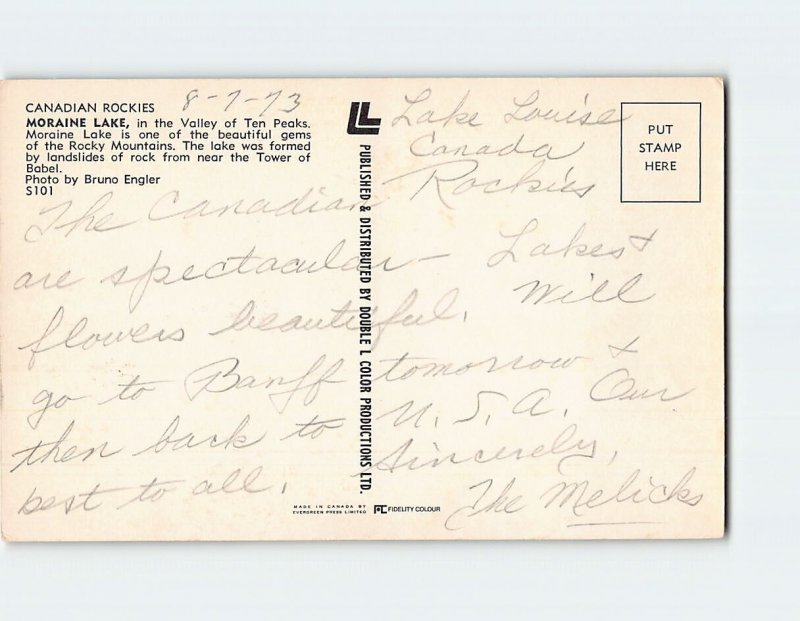 CANADIAN ROCKIES
MORAINE LAKE, in the Valley of Ten Peaks.
Moraine Lake is one of the beautiful gems
of the Rocky Mountains. The lake was formed
by landslides of rock from near the Tower of
Babel.
Photo by Bruno Engler
S101
8-7-73
LL
PUBLISHED & DISTRIBUTED BY DOUBLE L COLOR PRODUCTIONS LTD.
PUT
STAMP
HERE
Lake Louise
Canada
The Canadian Rockies
are spectacular - Lakes &
flowers beautiful. Will
go to Banff tomorrow &
then back to U.S.A. Our
best to all. Sincerely,
The Melicks
MADE IN CANADA BY
EVERGREEN PRESS LIMITED
FIDELITY COLOUR